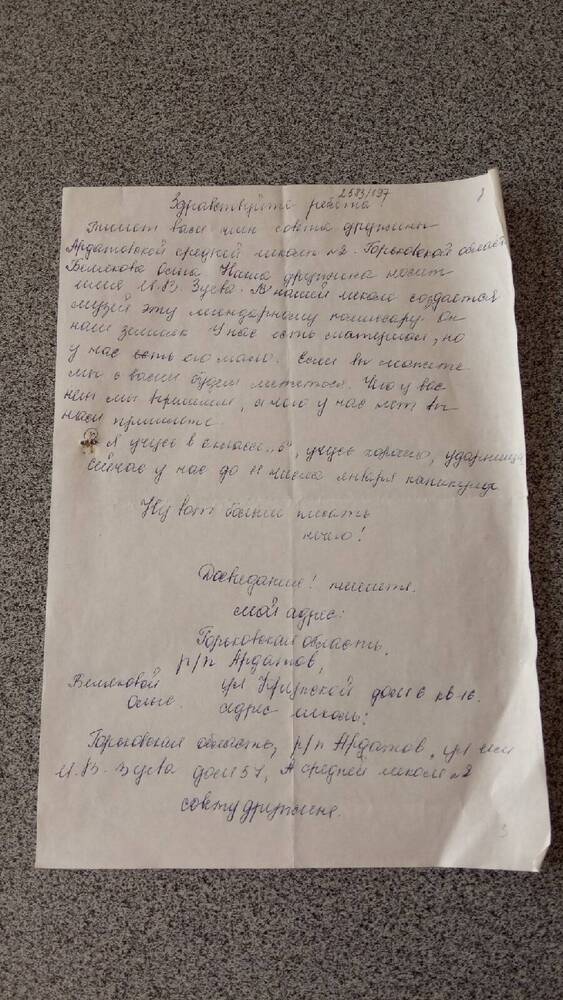 2583/197
Здравствуйте ребята
Пишет вам член совета дружины
Ардатовской средней школы №2. Горьковской области
Белякова Наша дружина носит
имя И.В. Зуева. В нашей школе создаётся
музей этому комиссару. Он
наш земляк. У нас есть материал, но
у нас его мало. Если вы можете
мы с вами будем Что у вас
нет мы вышлем, а чего у нас нет вы
нам пришлите.
Я учусь в классе "б", учусь хорошо, ударница
сейчас у нас до 11 числа января каникулы
Ну вот больше писать
нечего!
Досведания! пишите.
мой адрес:
Горьковская область,
р/п Ардатов,
Беляковой ул Крупской дом 6 кв 16.
Ольге. адрес школы:
Горьковская область, р/п Ардатов, ул им
И.В. Зуева дом 57, А средней школе №2
совету дружине.
3